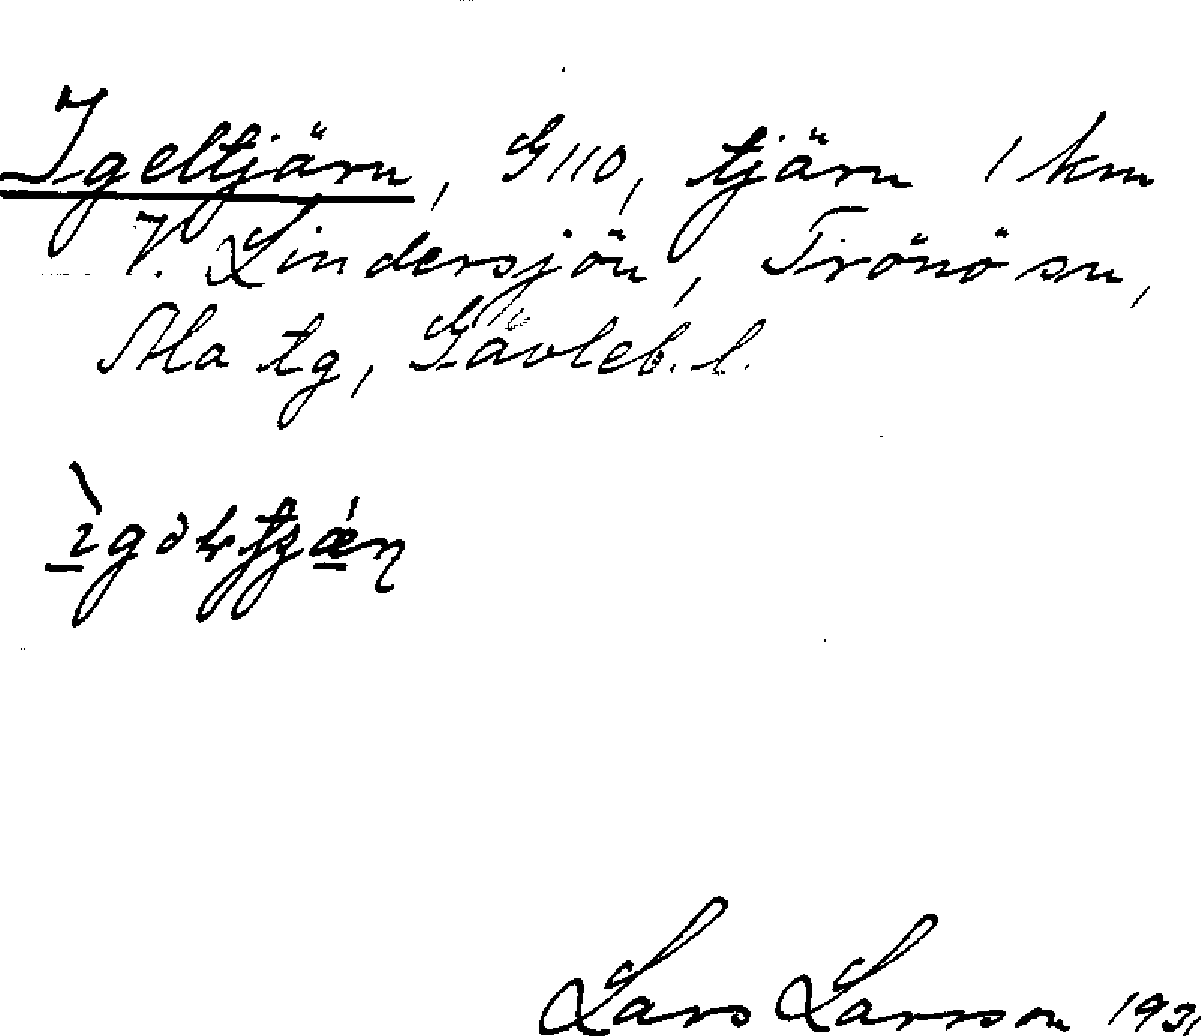 Igeltjärn, G110, tjärn 1 km
V. Lindersjön, Trönö sn,
Ala tg, Gävleb. l.
Lars Larsson 193